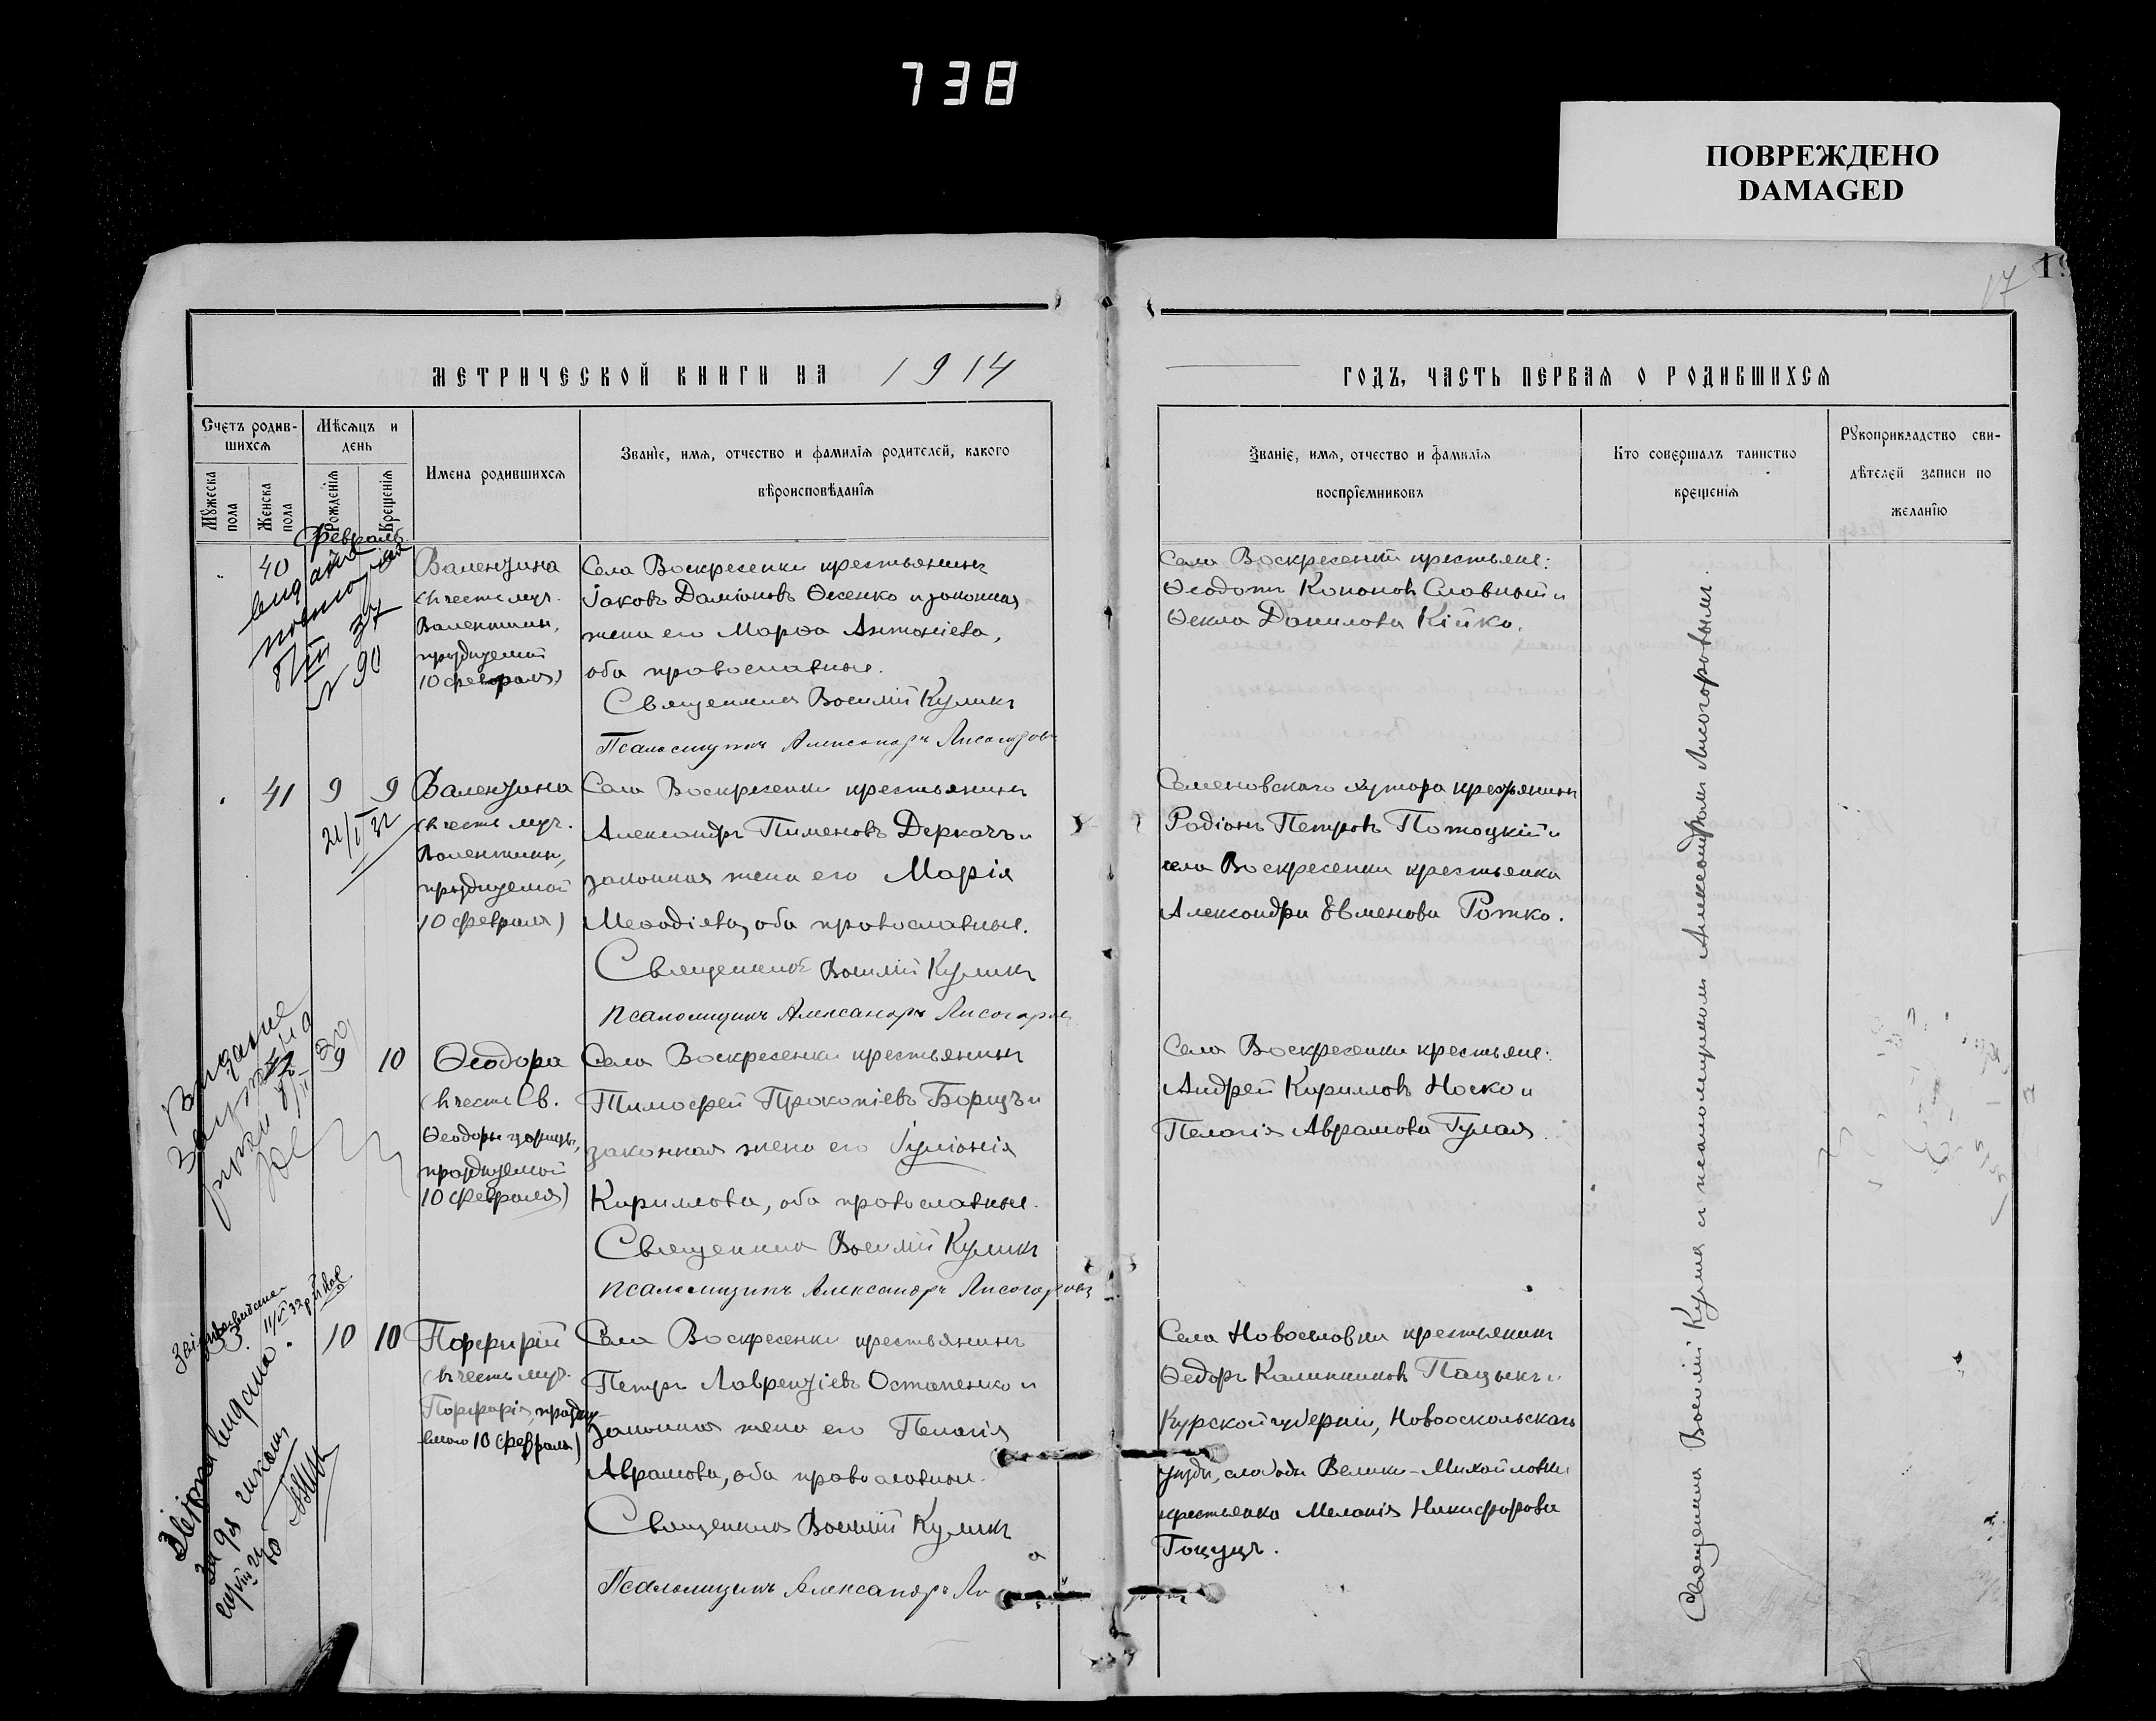 738
ПОВРЕЖДЕНО
DAMAGED
17
МЕТРИЧЕСКОЙ КНИГИ НА 1914
ГОДЪ, ЧАСТЬ ПЕРВАЯ О РОДИВШИХСЯ
Счетъ родив-
шихся
Мужеска
пола
Женска
пола
Мѣсяцъ и
день
Рожденія
Крещенія
Имена родившихся
Званіе, имя, отчество и фамилія родителей, какого
вѣроисповѣданія
Званіе, имя, отчество и фамилія
воспріемниковъ
Кто совершалъ таинство
крещенія
Рукоприкладство сви-
дѣтелей записи по
желанію
Февраль
40
Валентина
(въ честь муч.
Валентины,
празднуемой
10 февраля)
Села Воскресенки крестьянинъ
Іаковъ Даміановъ Ѳесенко и законная
жена его Марѳа Антоніева,
оба православные.
Священникъ Василій Куликъ
Псаломщикъ Александръ Лисогоровъ
Села Воскресенки крестьяне:
Ѳеодотъ Кононовъ Славный и
Ѳекла Данилова Кійко.
37
№ 90
41
9
9
21/I 32
Валентина
(въ честь муч.
Валентины,
празднуемой
10 февраля)
Села Воскресенки крестьянинъ
Александръ Пименовъ Деркачъ и
законная жена его Марія
Меѳодіева, оба православные.
Священникъ Василій Куликъ
Псаломщикъ Александръ Лисогоров
Семеновскаго хутора крестьянинъ
Родіонъ Петровъ Потоцкій и
села Воскресенки крестьянка
Александра Евменова Ротко.
9
10
Ѳеодора
(въ честь Св.
Ѳеодоры царицы,
празднуемой
10 февраля)
Села Воскресенки крестьянинъ
Тимофей Прокопіевъ Борщъ и
законная жена его Іуліанія
Кириллова, оба православные.
Священникъ Василій Куликъ
Псаломщикъ Александръ Лисогоровъ
Села Воскресенки крестьяне:
Андрей Кирилловъ Носко и
Пелагія Аврамова Гулая.
10
10
Порфирій
(въ честь муч.
Порфирія, праздну-
емаго 10 февраля)
Села Воскресенки крестьянинъ
Петръ Лаврентіевъ Остапенко и
законная жена его Пелагія
Аврамова, оба православные.
Священникъ Василій Куликъ
Псаломщикъ Александръ Ли
Села Новоселовки крестьянинъ
Ѳедоръ Калинниковъ Пацыкъ и
Курской губерніи, Новооскольскаго
уѣзда, слободы Велико-Михайловки
крестьянка Меланія Никифорова
Гоцуцъ.
Священникъ Василій Куликъ съ псаломщикомъ Александромъ Лисогоровымъ.